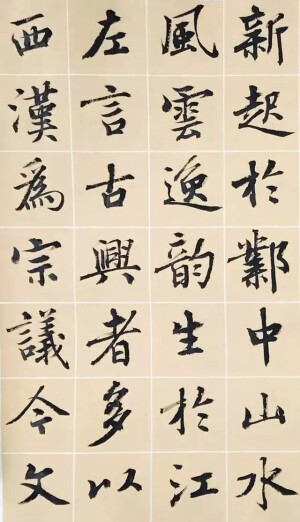 新起於鄴中山水
風雲逸韵生於江
左言古興者多以
西漢爲宗議今文